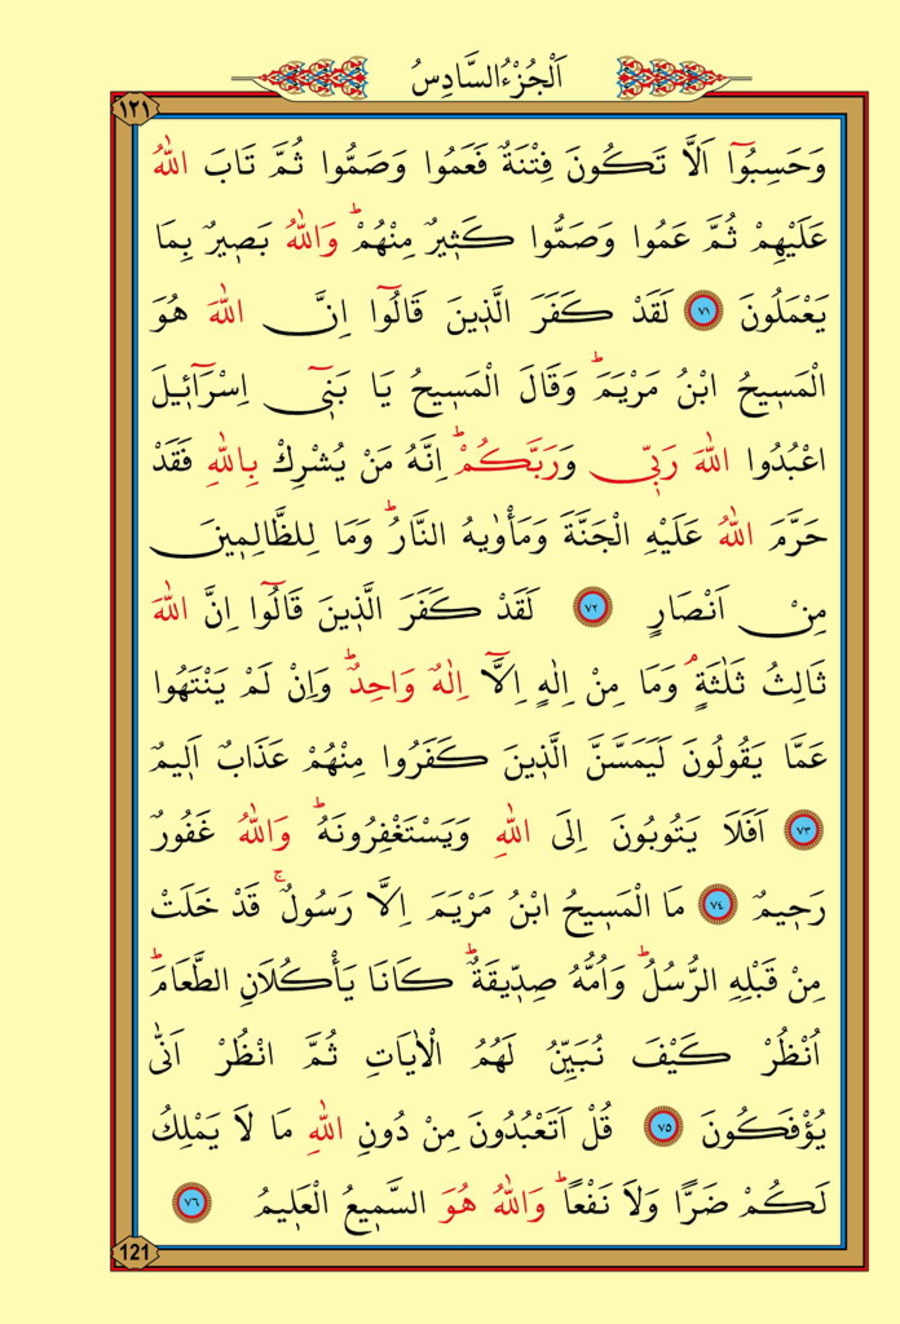 اَلْجُزْءُ السَّادِسُ
١٢١
وَحَسِبُٓوا اَلَّا تَكُونَ فِتْنَةٌ فَعَمُوا وَصَمُّوا ثُمَّ تَابَ اللّٰهُ
عَلَيْهِمْ ثُمَّ عَمُوا وَصَمُّوا كَثٖيرٌ مِنْهُمْؕ وَاللّٰهُ بَصٖيرٌ بِمَا
يَعْمَلُونَ ﴿٧١﴾ لَقَدْ كَفَرَ الَّذٖينَ قَالُٓوا اِنَّ اللّٰهَ هُوَ
الْمَسٖيحُ ابْنُ مَرْيَمَؕ وَقَالَ الْمَسٖيحُ يَا بَنٖٓي اِسْرَٓائٖيلَ
اعْبُدُوا اللّٰهَ رَبّٖي وَرَبَّكُمْؕ اِنَّهُ مَنْ يُشْرِكْ بِاللّٰهِ فَقَدْ
حَرَّمَ اللّٰهُ عَلَيْهِ الْجَنَّةَ وَمَأْوٰيهُ النَّارُؕ وَمَا لِلظَّالِمٖينَ
مِنْ اَنْصَارٍ ﴿٧٢﴾ لَقَدْ كَفَرَ الَّذٖينَ قَالُٓوا اِنَّ اللّٰهَ
ثَالِثُ ثَلٰثَةٍۘ وَمَا مِنْ اِلٰهٍ اِلَّٓا اِلٰهٌ وَاحِدٌؕ وَاِنْ لَمْ يَنْتَهُوا
عَمَّا يَقُولُونَ لَيَمَسَّنَّ الَّذٖينَ كَفَرُوا مِنْهُمْ عَذَابٌ اَلٖيمٌ
﴿٧٣﴾ اَفَلَا يَتُوبُونَ اِلَى اللّٰهِ وَيَسْتَغْفِرُونَهُؕ وَاللّٰهُ غَفُورٌ
رَحٖيمٌ ﴿٧٤﴾ مَا الْمَسٖيحُ ابْنُ مَرْيَمَ اِلَّا رَسُولٌۚ قَدْ خَلَتْ
مِنْ قَبْلِهِ الرُّسُلُؕ وَاُمُّهُ صِدّٖيقَةٌؕ كَانَا يَأْكُلَانِ الطَّعَامَؕ
اُنْظُرْ كَيْفَ نُبَيِّنُ لَهُمُ الْاٰيَاتِ ثُمَّ انْظُرْ اَنّٰى
يُؤْفَكُونَ ﴿٧٥﴾ قُلْ اَتَعْبُدُونَ مِنْ دُونِ اللّٰهِ مَا لَا يَمْلِكُ
لَكُمْ ضَرًّا وَلَا نَفْعًاؕ وَاللّٰهُ هُوَ السَّمٖيعُ الْعَلٖيمُ ﴿٧٦﴾
121